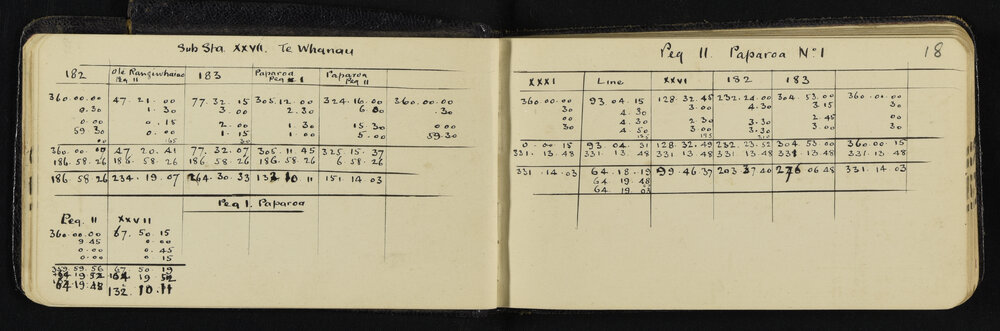 Sub Sta. XXVII. Te Whanau
182 Old Rangiwhaiao Peg 11 183 Paparoa Peg 1 Paparoa Peg 11
360.00.00 47.21.00 77.32.15 305.12.00 324.16.00 360.00.00
0.30 1.30 3.00 2.30 6.00 .30
0.00 0.15 2.00 1.30 15.30 000
59.30 0.00 1.15 1.00 5.00 59.30
360.00.00 47.20.41 77.32.07 305.11.45 325.15.37
186.58.26 186.58.26 186.58.26 186.58.26 6.58.26
186.58.26 234.19.07 264.30.33 132.10.11 151.14.03
Peg I. Paparoa
Peg. 11 XXVII
360.00.00 67.50.15
9.45 0.00
0.00 0.45
0.00 0.15
359.59.56 67.50.19
64.19.52 19.52
64.19.48 132.10.11
Peg 11 Paparoa No. 1 18
XXXI Line XXVI 182 183
360.00.00 93.04.15 128.32.45 232.24.00 304.53.00 360.01.00
30 4.30 3.00 4.30 3.15 30
00 4.30 2.30 3.30 2.45 00
30 4.50 3.00 3.30 3.00 30
0.00.15 93.04.31 128.32.49 232.23.52 304.53.00 360.00.15
331.13.48 331.13.48 331.13.48 331.13.48 331.13.48 331.13.48
331.14.03 64.18.19 99.46.37 203.37.40 276.06.48 331.14.03
64.19.48
64.19.03